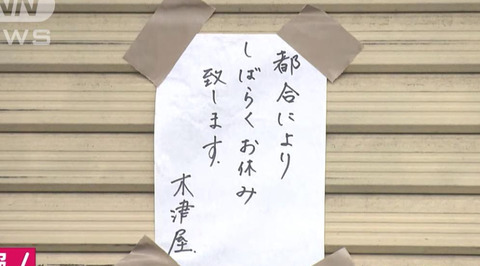 NN
NEWS
都合により
しばらくお休み
致します.
木津屋.